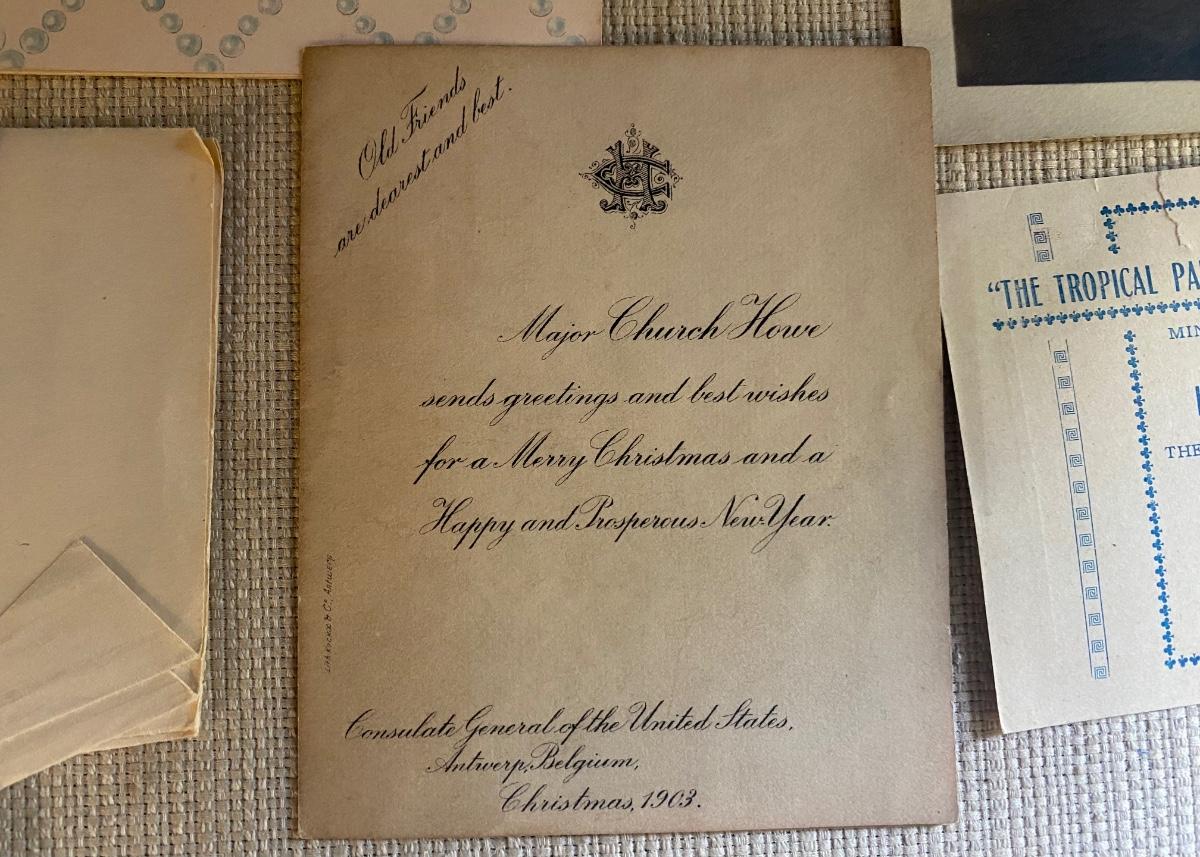 Old Friends
are dearest and best.
Major Church Howe
sends greetings and best wishes
for a Merry Christmas and a
Happy and Prosperous New-Year.
Consulate General of the United States,
Antwerp, Belgium,
Christmas, 1903.
& Co., Antwerp
"THE TROPICAL PA
MIN
THE